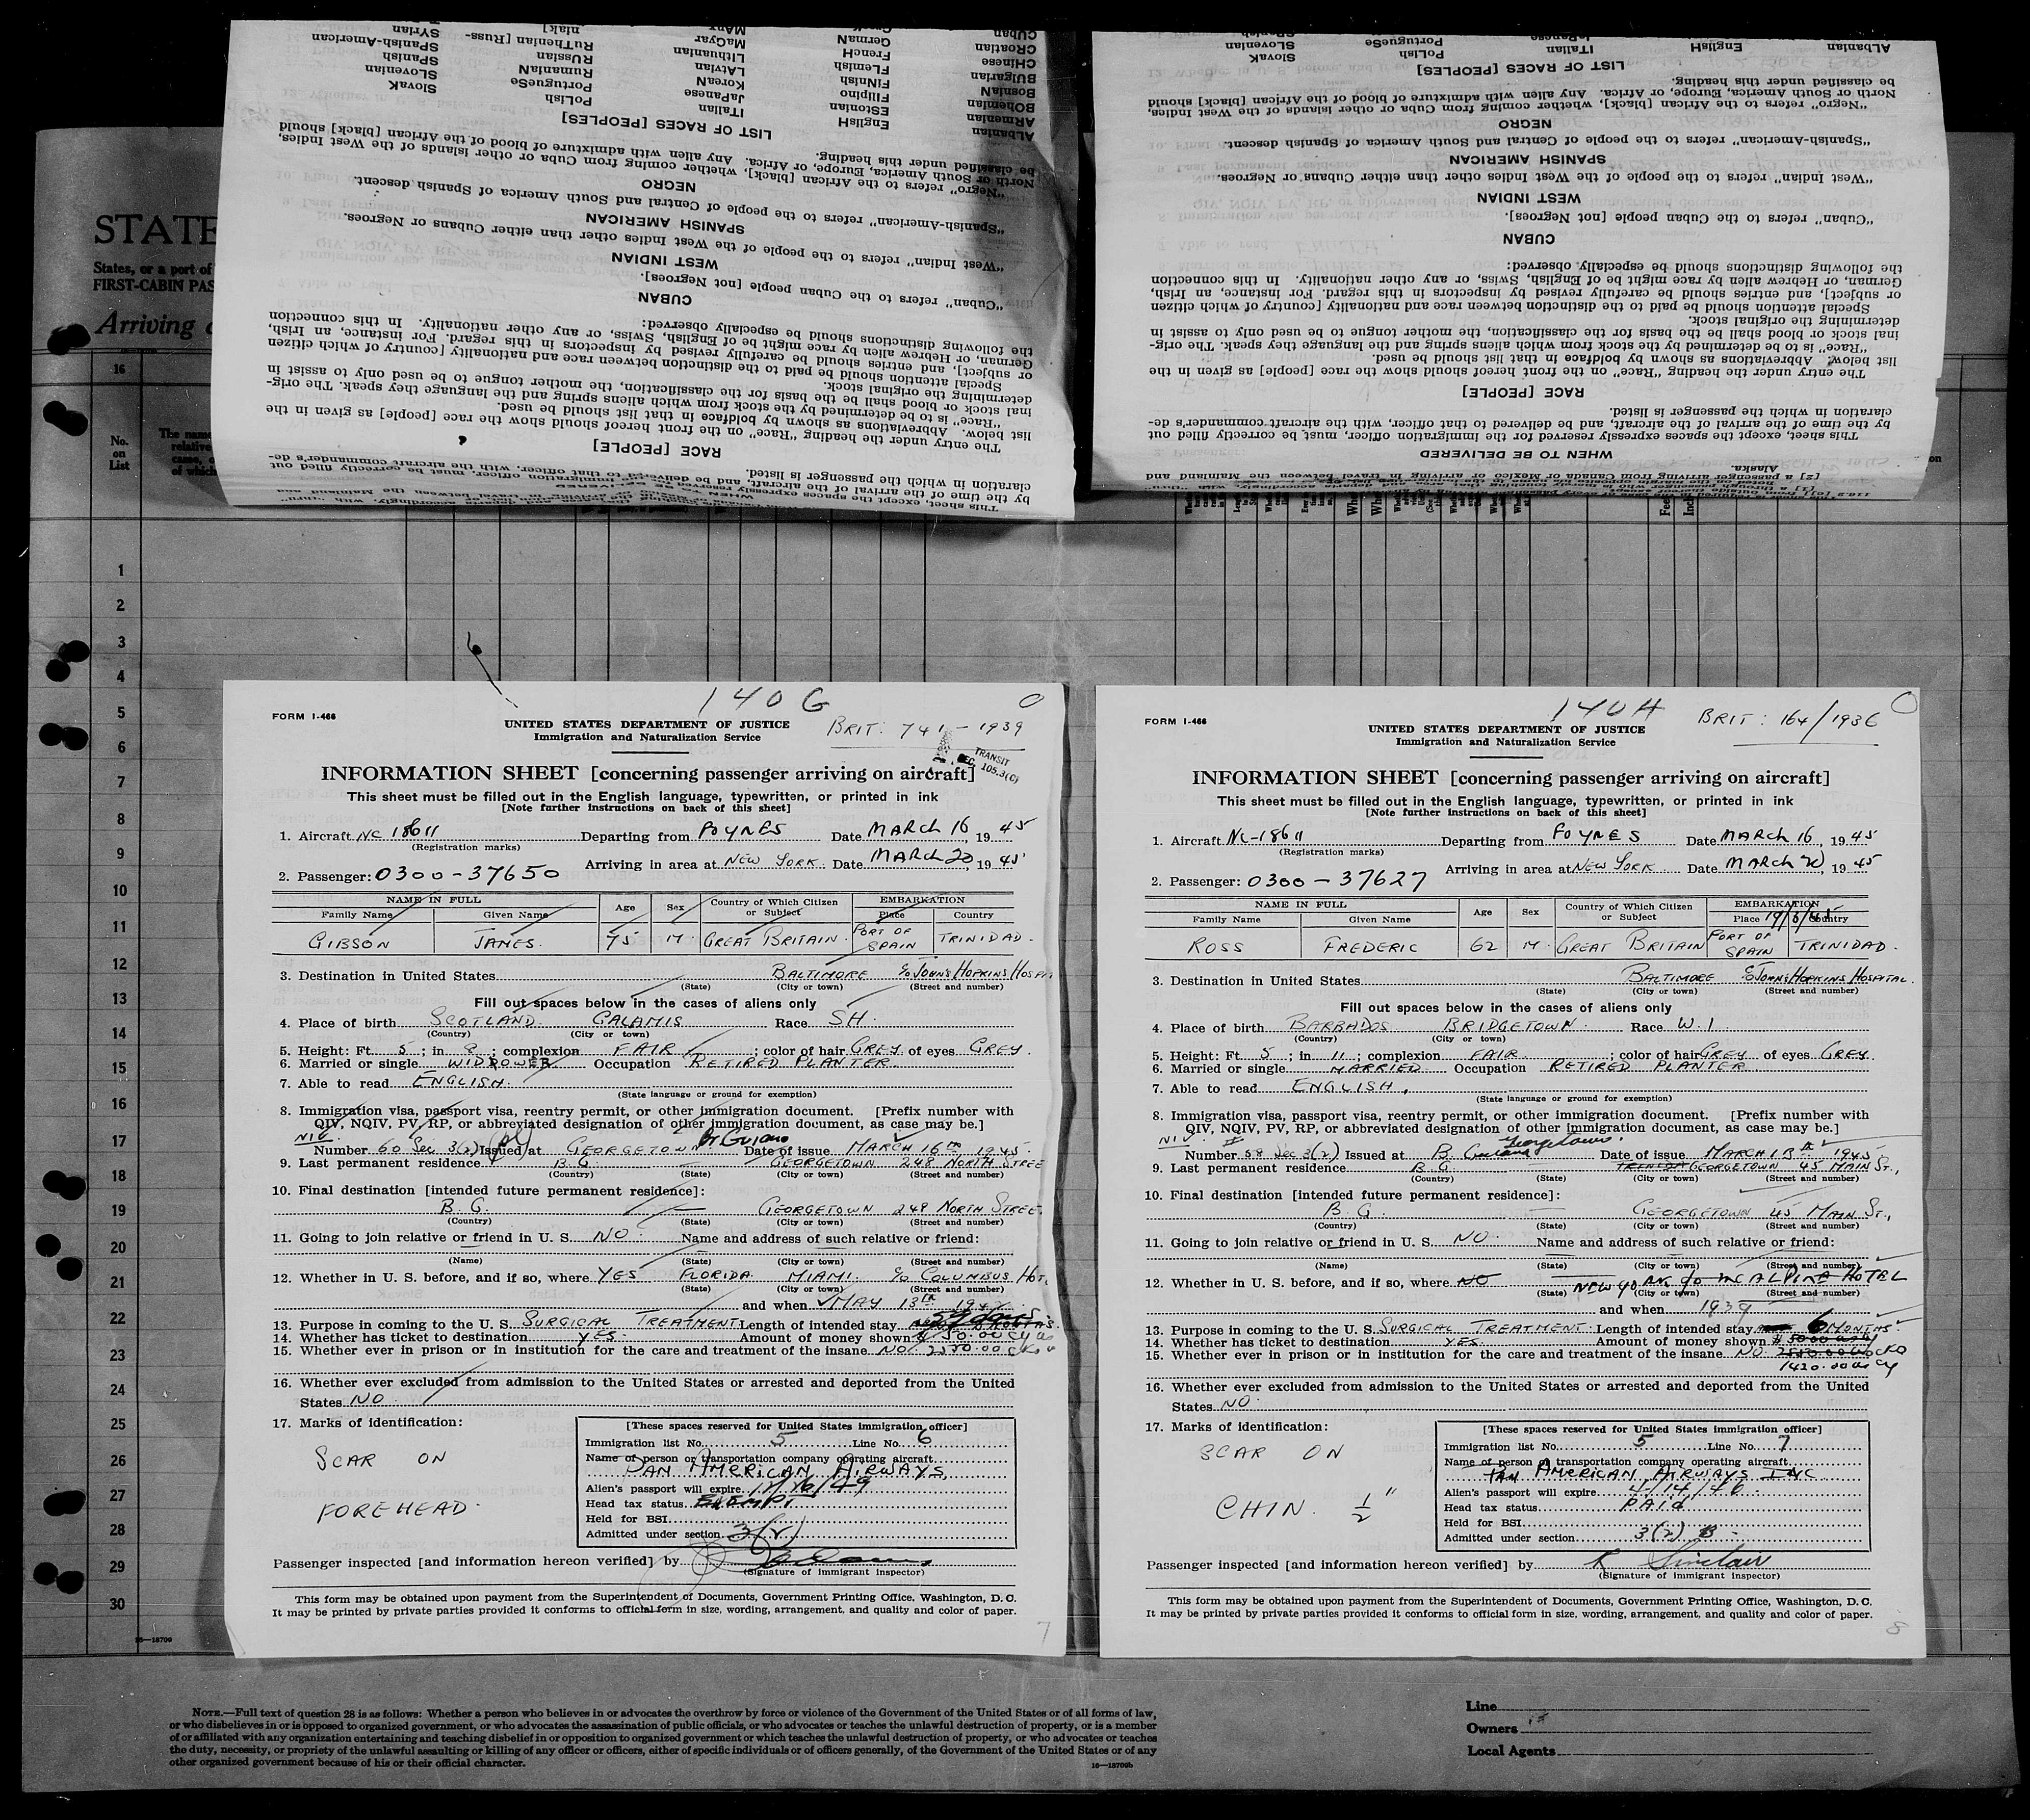 STATE
States, or a port of
FIRST-CABIN PAS
Arriving
16
No.
on
List
1
2
3
4
5
6
7
8
9
10
11
12
13
14
15
16
17
18
19
20
21
22
23
24
25
26
27
28
29
30
16—18709
claration in which the passenger is listed.
RACE [PEOPLE]
The entry under the heading "Race" on the front hereof should show the race [people] as given in the
list below. Abbreviations as shown by boldface in that list should be used.
"Race" is to be determined by the stock from which aliens spring and the language they speak. The orig-
inal stock or blood shall be the basis for the classification, the mother tongue to be used only to assist in
determining the original stock.
Special attention should be paid to the distinction between race and nationality [country of which citizen
or subject], and entries should be carefully revised by inspectors in this regard. For instance, an Irish,
German, or Hebrew alien by race might be of English, Swiss, or any other nationality. In this connection
the following distinctions should be especially observed:
CUBAN
"Cuban" refers to the Cuban people [not Negroes].
WEST INDIAN
"West Indian" refers to the people of the West Indies other than either Cubans or Negroes.
SPANISH AMERICAN
"Spanish-American" refers to the people of Central and South America of Spanish descent.
NEGRO
"Negro" refers to the African [black], whether coming from Cuba or other islands of the West Indies,
North or South America, Europe, or Africa. Any alien with admixture of blood of the African [black] should
be classified under this heading.
LIST OF RACES [PEOPLES]
Albanian EnglisH ITalian PoLish SlovaK
ARmenian EStonian JaPanese PortugueSe SLOvenian
BOHemian Filipino Korean RumaniaN SPanish
BosniaN FINnish LATvian RUssian SPanish-American
BUlgarian FLemish Lithuanian RuThenian [Russ- SYrian
CHinese FrencH MaGyar niak]
CROatian GermaN
CUban
WHEN TO BE DELIVERED
This sheet, except the spaces expressly reserved for the immigration officer, must be correctly filled out
by the time of the arrival of the aircraft, and be delivered to that officer, with the aircraft commander's de-
claration in which the passenger is listed.
RACE [PEOPLE]
The entry under the heading "Race" on the front hereof should show the race [people] as given in the
list below. Abbreviations as shown by boldface in that list should be used.
"Race" is to be determined by the stock from which aliens spring and the language they speak. The orig-
inal stock or blood shall be the basis for the classification, the mother tongue to be used only to assist in
determining the original stock.
Special attention should be paid to the distinction between race and nationality [country of which citizen
or subject], and entries should be carefully revised by inspectors in this regard. For instance, an Irish,
German, or Hebrew alien by race might be of English, Swiss, or any other nationality. In this connection
the following distinctions should be especially observed:
CUBAN
"Cuban" refers to the Cuban people [not Negroes].
WEST INDIAN
"West Indian" refers to the people of the West Indies other than either Cubans or Negroes.
SPANISH AMERICAN
"Spanish-American" refers to the people of Central and South America of Spanish descent.
NEGRO
"Negro" refers to the African [black], whether coming from Cuba or other islands of the West Indies,
North or South America, Europe, or Africa. Any alien with admixture of blood of the African [black] should
be classified under this heading.
LIST OF RACES [PEOPLES]
ALbanian EnglisH ITalian PoLish SlovaK
140G
FORM I-466
UNITED STATES DEPARTMENT OF JUSTICE
Immigration and Naturalization Service
BRIT: 741 - 1939
TRANSIT
SEC. 105.3(C)
INFORMATION SHEET [concerning passenger arriving on aircraft]
This sheet must be filled out in the English language, typewritten, or printed in ink
[Note further instructions on back of this sheet]
1. Aircraft NC 18611 Departing from FOYNES Date MARCH 16, 1945
(Registration marks)
Arriving in area at NEW YORK Date MARCH 20, 1945
2. Passenger: 0300-37650
NAME IN FULL Age Sex Country of Which Citizen or Subject EMBARKATION
Family Name Given Name Place Country
GIBSON JAMES. 75 M. GREAT BRITAIN. PORT OF SPAIN TRINIDAD.
3. Destination in United States BALTIMORE c/o JOHNS HOPKINS HOSPI
(State) (City or town) (Street and number)
Fill out spaces below in the cases of aliens only
4. Place of birth SCOTLAND. GALAMIS Race SH.
(Country) (City or town)
5. Height: Ft. 5; in 9; complexion FAIR; color of hair GREY of eyes GREY.
6. Married or single WIDOWER Occupation RETIRED PLANTER.
7. Able to read ENGLISH.
(State language or ground for exemption)
8. Immigration visa, passport visa, reentry permit, or other immigration document. [Prefix number with
QIV, NQIV, PV, RP, or abbreviated designation of other immigration document, as case may be.]
NIV.
Number 60 Sec 3(2) Issued at GEORGETOWN Br Guiana Date of issue MARCH 16th 1945
9. Last permanent residence B.G. GEORGETOWN 248 NORTH STREE
(Country) (State) (City or town) (Street and number)
10. Final destination [intended future permanent residence]:
B.G. GEORGETOWN 248 NORTH STREE
(Country) (State) (City or town) (Street and number)
11. Going to join relative or friend in U. S. NO. Name and address of such relative or friend:
(Name) (State) (City or town) (Street and number)
12. Whether in U. S. before, and if so, where YES FLORIDA. MIAMI. c/o COLUMBUS HOT.
(State) (City or town) (Street and number)
and when MAY 13th
13. Purpose in coming to the U. S. SURGICAL TREATMENT. Length of intended stay
14. Whether has ticket to destination YES. Amount of money shown
15. Whether ever in prison or in institution for the care and treatment of the insane NO.
16. Whether ever excluded from admission to the United States or arrested and deported from the United
States NO.
17. Marks of identification:
SCAR ON
FOREHEAD.
[These spaces reserved for United States immigration officer]
Immigration list No. 5 Line No. 6
Name of person or transportation company operating aircraft
PAN AMERICAN AIRWAYS.
Alien's passport will expire
Head tax status EXEMPT
Held for BSI
Admitted under section 3(2)
Passenger inspected [and information hereon verified] by
(Signature of immigrant inspector)
This form may be obtained upon payment from the Superintendent of Documents, Government Printing Office, Washington, D. C.
It may be printed by private parties provided it conforms to official form in size, wording, arrangement, and quality and color of paper.
7
140H
FORM I-466
UNITED STATES DEPARTMENT OF JUSTICE
Immigration and Naturalization Service
BRIT: 164/1936
INFORMATION SHEET [concerning passenger arriving on aircraft]
This sheet must be filled out in the English language, typewritten, or printed in ink
[Note further instructions on back of this sheet]
1. Aircraft NC-18611 Departing from FOYNES Date MARCH 16, 1945
(Registration marks)
Arriving in area at NEW YORK Date MARCH 20, 1945
2. Passenger: 0300-37627
NAME IN FULL Age Sex Country of Which Citizen or Subject EMBARKATION
Family Name Given Name Place Country
ROSS FREDERIC 62 M. GREAT BRITAIN PORT OF SPAIN TRINIDAD.
3. Destination in United States BALTIMORE c/o JOHNS HOPKINS HOSPITAL.
(State) (City or town) (Street and number)
Fill out spaces below in the cases of aliens only
4. Place of birth BARBADOS. BRIDGETOWN. Race W.I.
(Country) (City or town)
5. Height: Ft. 5; in 11; complexion FAIR; color of hair GREY of eyes GREY.
6. Married or single MARRIED. Occupation RETIRED PLANTER
7. Able to read ENGLISH.
(State language or ground for exemption)
8. Immigration visa, passport visa, reentry permit, or other immigration document. [Prefix number with
QIV, NQIV, PV, RP, or abbreviated designation of other immigration document, as case may be.]
NIV.
Number 58 Sec 3(2) Issued at B. Guiana Georgetown. Date of issue MARCH 13th 1945
9. Last permanent residence B.G. GEORGETOWN 45 MAIN ST.,
(Country) (State) (City or town) (Street and number)
10. Final destination [intended future permanent residence]:
B.G. GEORGETOWN 45 MAIN ST.,
(Country) (State) (City or town) (Street and number)
11. Going to join relative or friend in U. S. NO. Name and address of such relative or friend:
(Name) (State) (City or town) (Street and number)
12. Whether in U. S. before, and if so, where NO NEW YORK c/o MCALPINE HOTEL
(State) (City or town) (Street and number)
and when 1939
13. Purpose in coming to the U. S. SURGICAL TREATMENT. Length of intended stay 6 MONTHS.
14. Whether has ticket to destination YES. Amount of money shown
15. Whether ever in prison or in institution for the care and treatment of the insane NO.
1420.00 us cy
16. Whether ever excluded from admission to the United States or arrested and deported from the United
States NO.
17. Marks of identification:
SCAR ON
CHIN. 1/2"
[These spaces reserved for United States immigration officer]
Immigration list No. 5 Line No. 7
Name of person or transportation company operating aircraft
PAN AMERICAN AIRWAYS INC.
Alien's passport will expire 4/14/46.
Head tax status PAID
Held for BSI
Admitted under section 3(2) B
Passenger inspected [and information hereon verified] by K Sinclair
(Signature of immigrant inspector)
This form may be obtained upon payment from the Superintendent of Documents, Government Printing Office, Washington, D. C.
It may be printed by private parties provided it conforms to official form in size, wording, arrangement, and quality and color of paper.
8
NOTE.—Full text of question 28 is as follows: Whether a person who believes in or advocates the overthrow by force or violence of the Government of the United States or of all forms of law,
or who disbelieves in or is opposed to organized government, or who advocates the assassination of public officials, or who advocates or teaches the unlawful destruction of property, or is a member
of or affiliated with any organization entertaining and teaching disbelief in or opposition to organized government or which teaches the unlawful destruction of property, or who advocates or teaches
the duty, necessity, or propriety of the unlawful assaulting or killing of any officer or officers, either of specific individuals or of officers generally, of the Government of the United States or of any
other organized government because of his or their official character.
16—18709b
Line
Owners
Local Agents